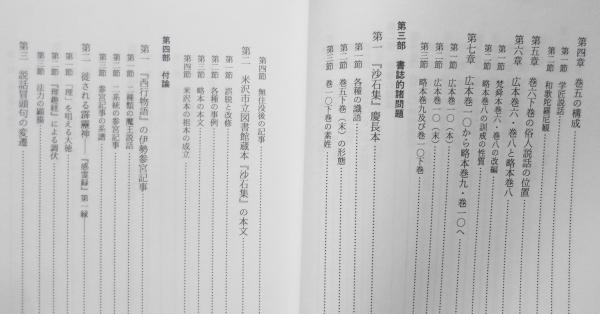 第四章　巻五の構成
第一節　学匠説話
第二節　和歌陀羅尼観
第五章　巻六下巻の俗人説話の位置
第六章　広本巻六・巻八と略本巻八
第一節　梵舜本巻六・巻八の改編
第二節　略本巻八の訓戒の性質
第七章　広本巻一〇から略本巻九・巻一〇へ
第一節　広本巻一〇（本）
第二節　広本巻一〇（末）
第三節　略本巻九及び巻一〇下巻
第三部　書誌的諸問題
第一　『沙石集』慶長本
第一節　各種の識語
第二節　巻五下巻（末）の形態
第三節　巻一〇下巻の素姓
第四節　無住没後の記事
第二　米沢市立図書館蔵本『沙石集』の本文
第一節　誤脱と改修
第二節　各種の事例
第三節　略本の本文
第四節　米沢本の祖本の成立
第四部　付論
第一　『西行物語』の伊勢参宮記事
第一節　二種類の魔王説話
第二節　二系統の参宮記事
第三節　参宮記事の系譜
第二　徙される霹靂神――『感霊録』第一縁
第一節　「理」を唱える大徳
第二節　『理趣経』による調伏
第三節　法力の顕揚
第三　説話冒頭句の変遷